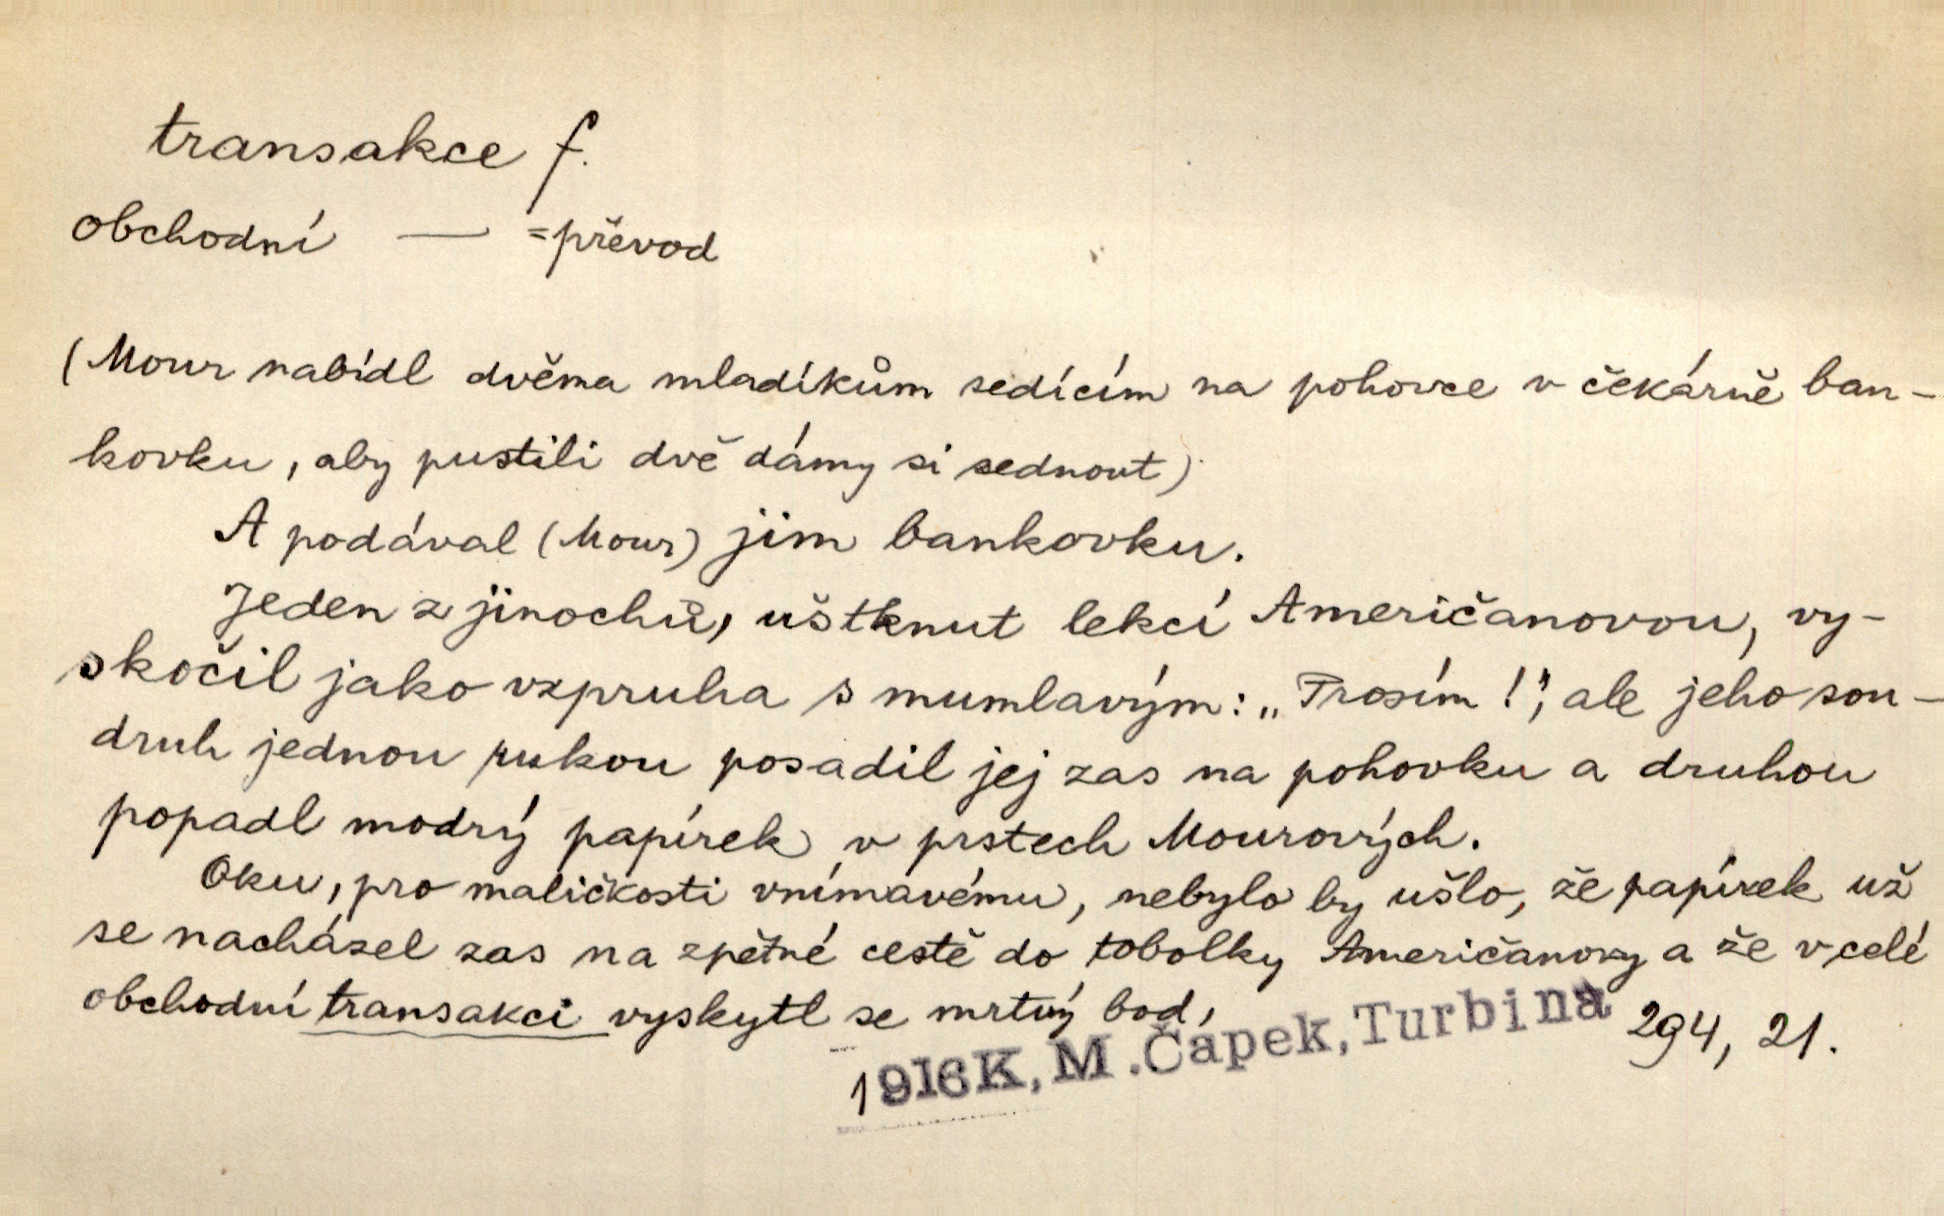 transakce f.
obchodní — =převod
(Mour nabídl dvěma mladíkům sedícím na pohovce v čekárně ban-
kovku, aby pustili dvě dámy si sednout)
A podával (Mour) jim bankovku.
Jeden z jinochů, uštknut lekcí Američanovou, vy-
skočil jako vzpruha s mumlavým: „Prosím!", ale jeho sou-
druh jednou rukou posadil jej zas na pohovku a druhou
popadl modrý papírek v prstech Mourových.
Oku, pro maličkosti vnímavému, nebylo by ušlo, že papírek už
se nacházel zas na zpětné cestě do tobolky Američanovy a že v celé
obchodní transakci vyskytl se mrtvý bod,
1916K, M.Čapek, Turbina 294, 21.